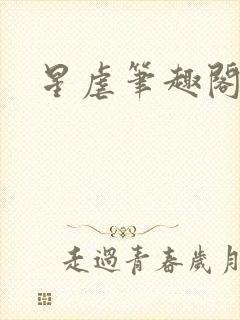 星虐筆趣閣
走過青春歲月